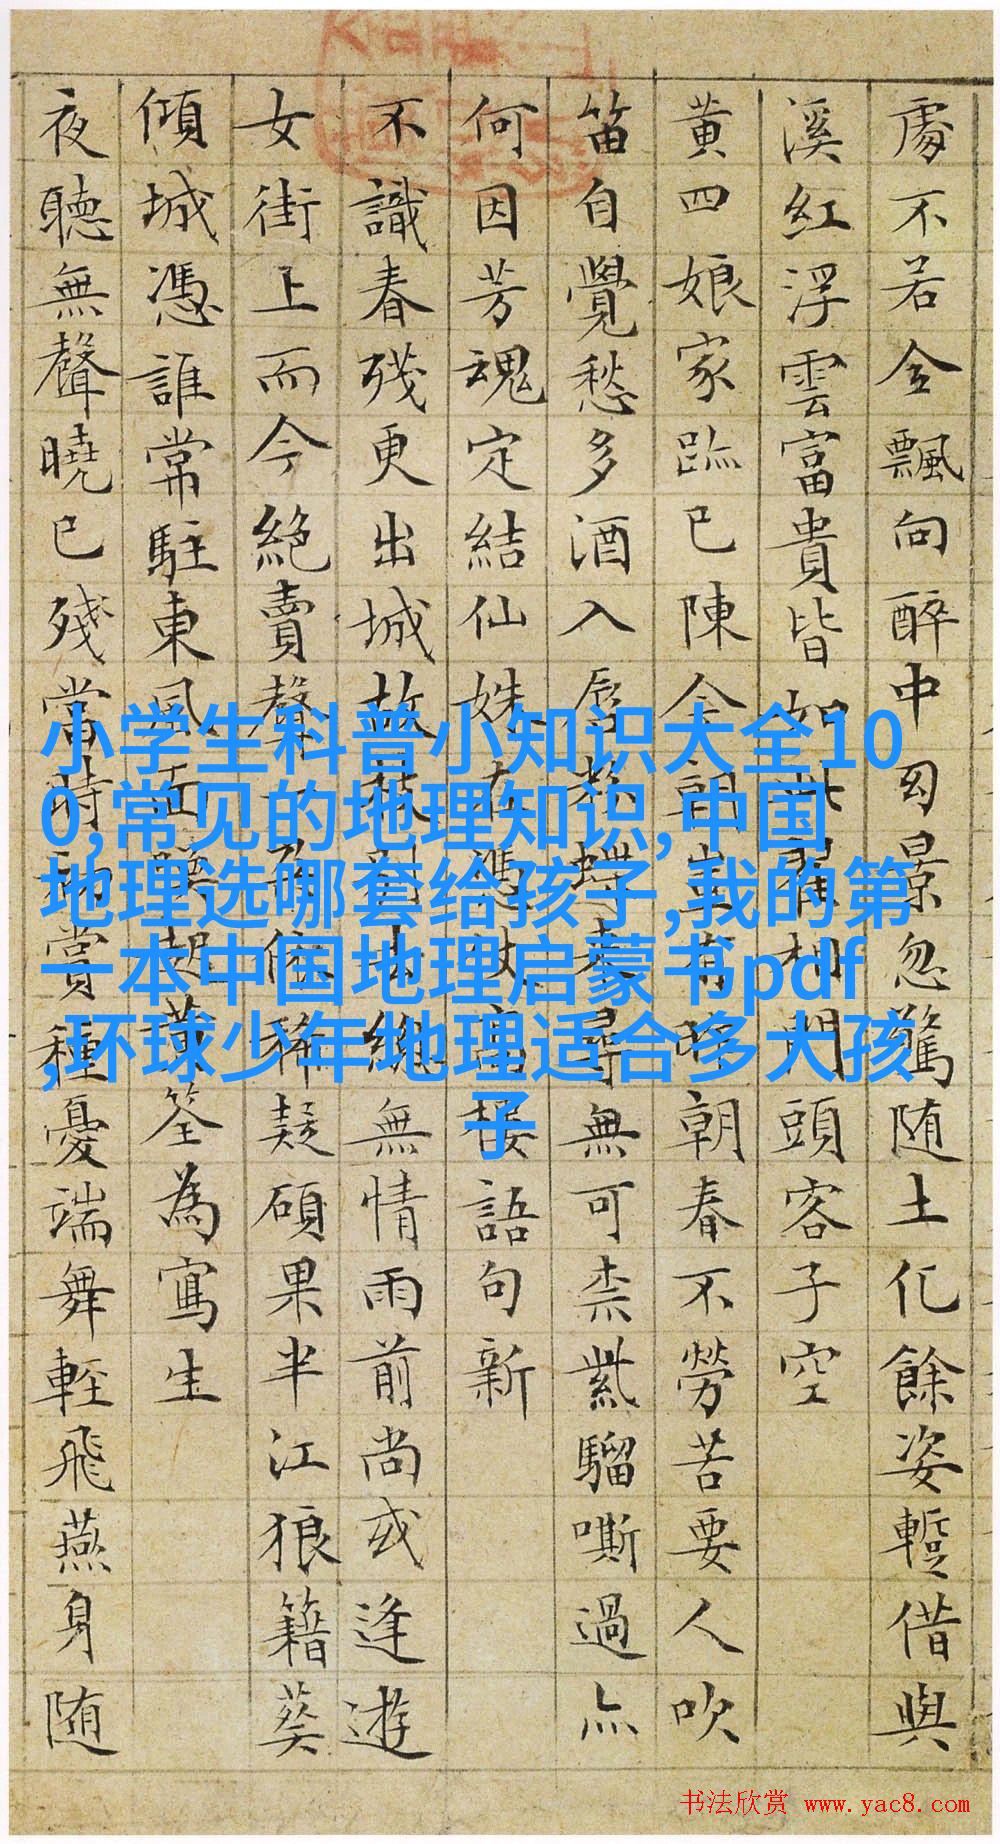 處不若金飄向醉中囪景忽驚随土化餘姿蹔借與
溪紅浮雲富貴皆如此翟相門頭客子空
黄四娘家跡已陳今朝重有時朝春不勞苦要人吹
笛自覺愁多酒入唇教蝶来尋無可柰紫騮嘶過
何因芳魂定結仙姝在憑仗高樓語句新
不識春殘更出城故枝無情雨前尚或逢遊
女街上而今絕賣聲稀疑碩果半江狼籍葵
傾城憑誰常駐東風面筌為寫生
夜聽無聲曉已殘當時賞種憂端舞輕飛燕身随
小学生科普小知识大全10
0,常见的地理知识,中国
地理选哪套给孩子,我的第
一本中国地理启蒙书pdf
,环球少年地理适合多大孩
子
书法欣赏 www.yac8.com